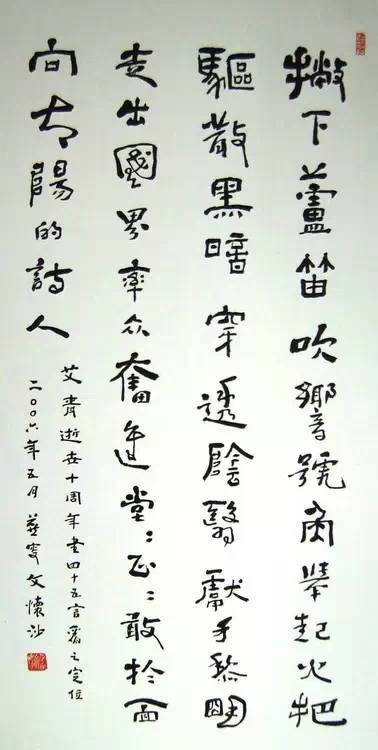 撇下蘆笛吹響號角舉起火把
驅散黑暗穿透陰翳獻予黎明
走出國界率众奮進堂〻正〻敢於面
向太陽的詩人
艾青逝世十周年書四十五言爲之定位
二〇〇六年五月 燕叟文懷沙